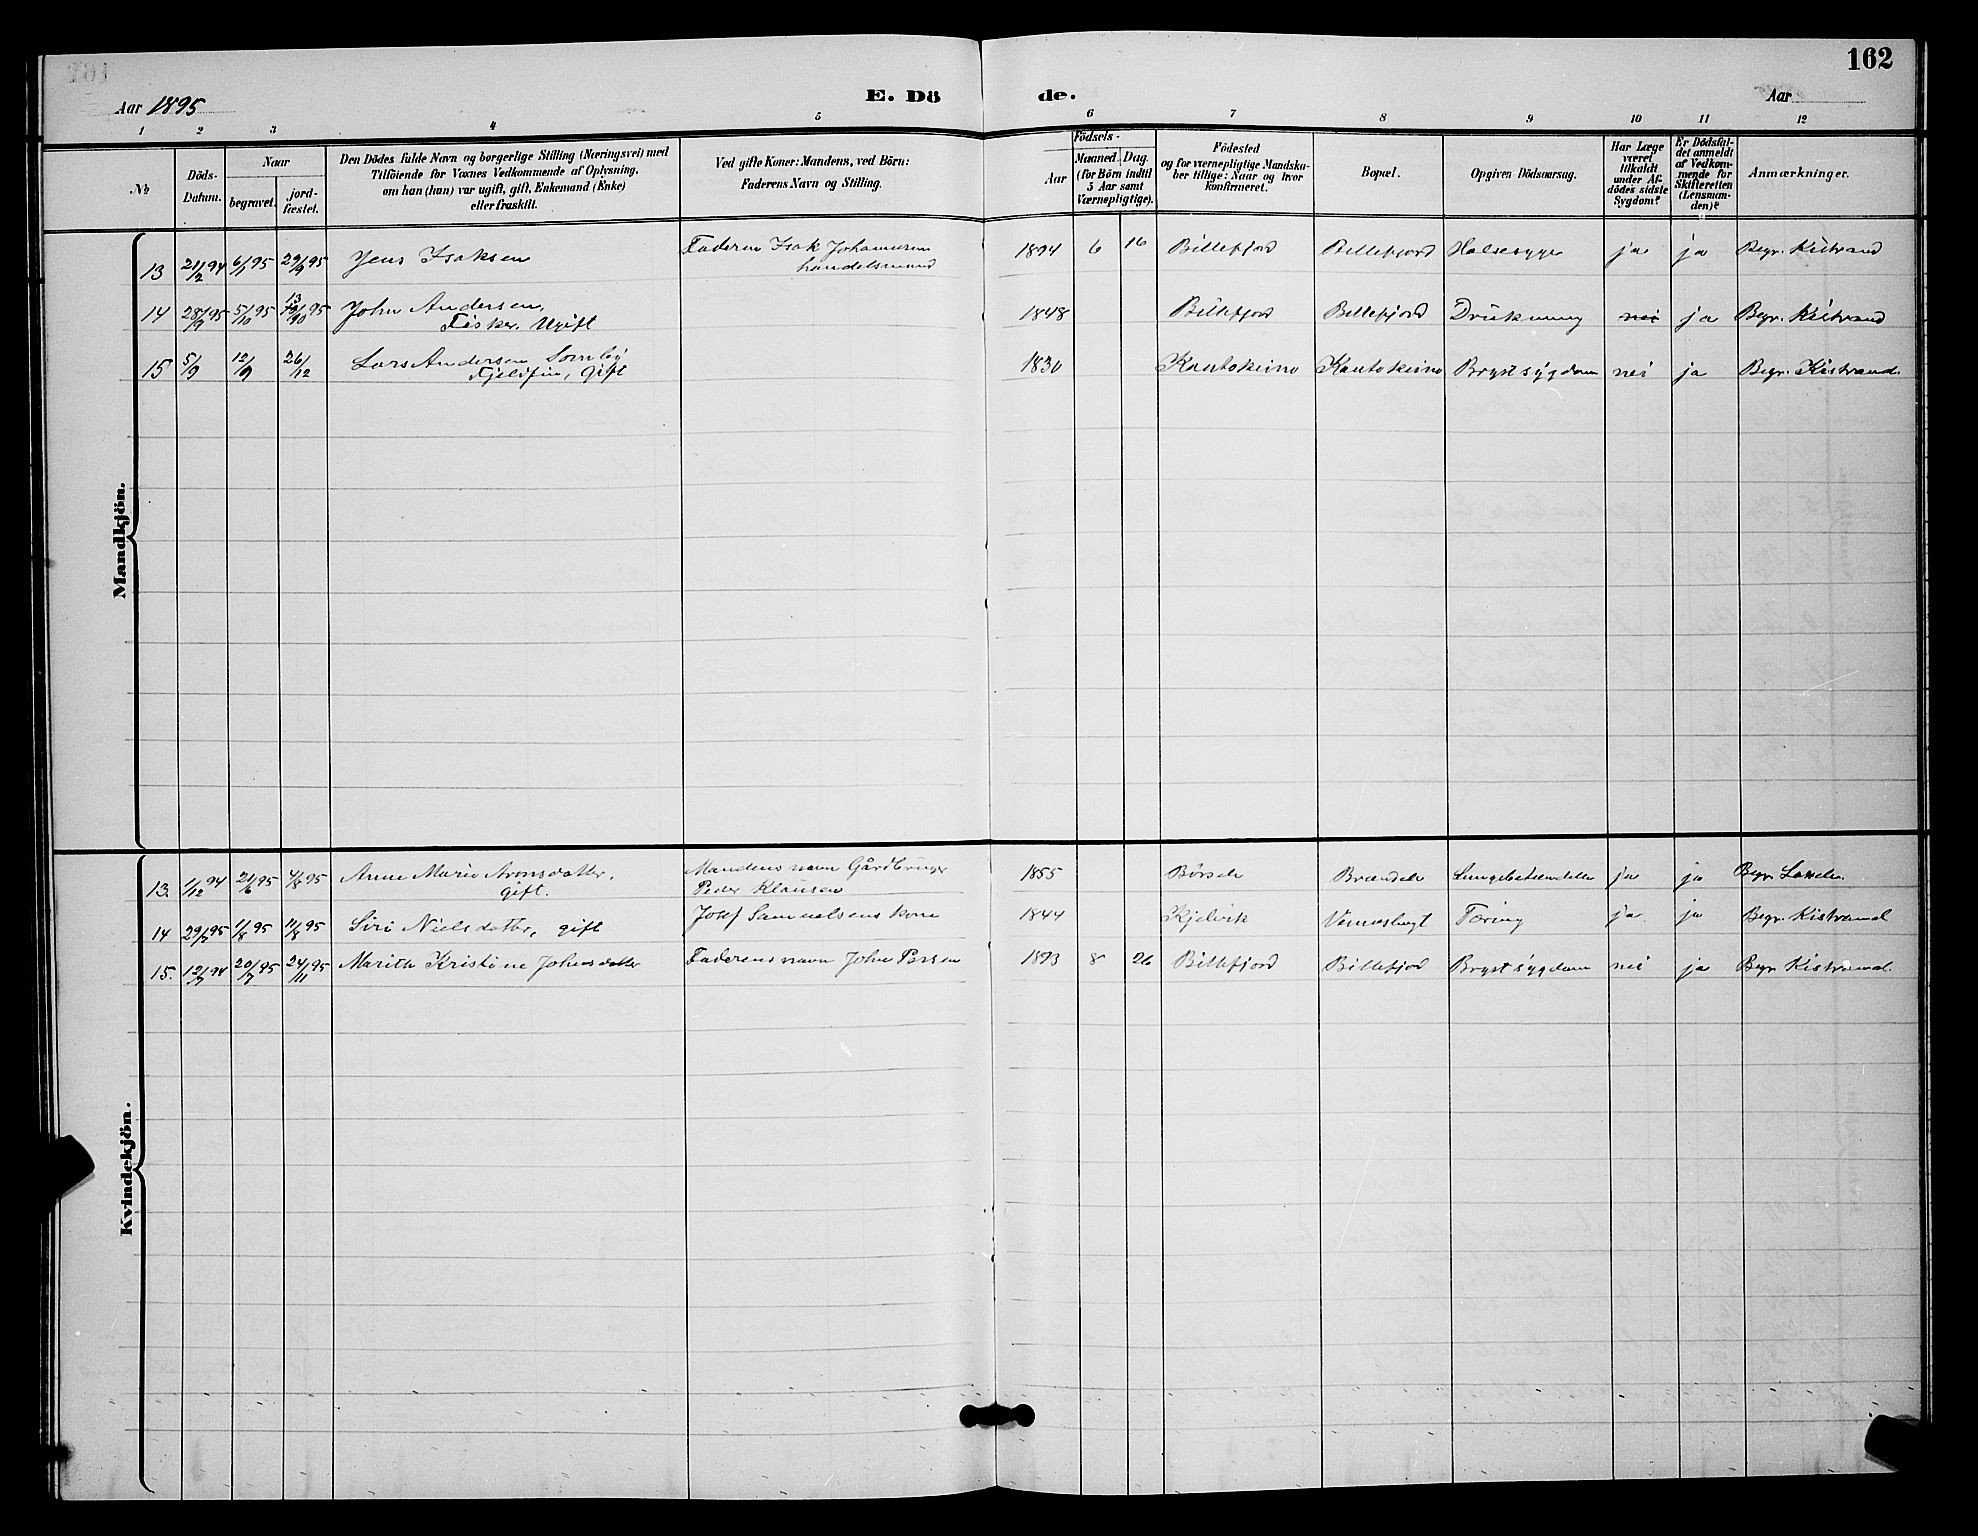 162
Aar 1895
E. Dö
de.
Aar
1 2 3 4 5 6 7 8 9 10 11 12
No
Döds-
Datum.
Naar
begravet.
jord-
fæstet.
Den Dödes fulde Navn og borgerlige Stilling (Næringsvei) med
Tilföiende for Voxnes Vedkommende af Oplysning,
om han (hun) var ugift, gift, Enkemand (Enke)
eller fraskilt.
Ved gifte Koner: Mandens, ved Börn:
Faderens Navn og Stilling.
Födsels-
Aar
Maaned. Dag.
(for Börn indtil
5 Aar samt
Værnepligtige).
Födested
og for værnepligtige Mandska-
ber tillige: Naar og hvor
konfirmeret.
Bopæl.
Opgiven Dödsaarsag.
Har Læge
været
tilkaldt
under Af-
dödes sidste
Sygdom?
Er Dödsfal-
det anmeldt
af Vedkom-
mende for
Skifteretten
(Lensman-
den)?
Anmærkninger.
Mandkjön.
13 21/12 94 6/1 95 29/9 95 Jens Isaksen Faderen Isak Johannesen 1894 6 16 Billefjord Billefjord Halsesyge ja ja Begr. Kistrand
handelsmand
14 28/9 95 5/10 95 13/10 95 John Andersen, 1848 Billefjord Billefjord Drukning nei ja Begr. Kistrand
Fisker, Ugift
15 5/9 12/9 26/12 Lars Andersen Somby 1830 Kautokeino Kautokeino Brystsygdom nei ja Begr. Kistrand.
Fjeldfin, gift
Kvindekjön.
13. 1/12 94 21/6 95 4/8 95 Anne Marie Aronsdatter, Mandens navn Gårdbruger 1855 Børselv Brændelv ja ja Begr. Lakselv.
gift. Peder Klausen
14 29/7 95 1/8 95 11/8 95 Siri Nielsdatter, gift Josef Samuelsens kone 1844 Kjelvik Tæring ja ja Begr. Kistrand
15. 12/7 94 20/7 95 24/11 95 Marith Kristine Johnsdatter Faderens navn John Persen 1893 8 26 Billefjord Billefjord Brystsygdom nei ja Begr. Kistrand.